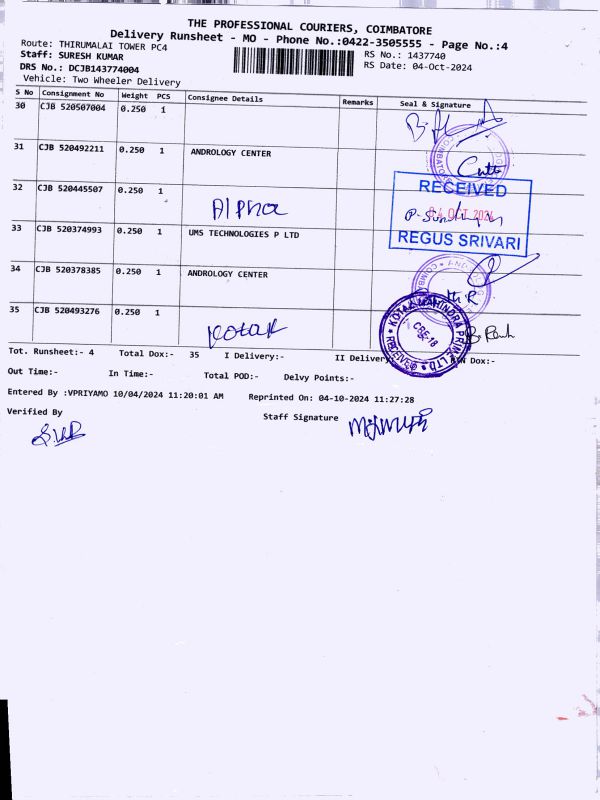 THE PROFESSIONAL COURIERS, COIMBATORE
Delivery Runsheet - MO - Phone No.:0422-3505555 - Page No.:4
Route: THIRUMALAI TOWER PC4
RS No.: 1437740
Staff: SURESH KUMAR
RS Date: 04-Oct-2024
DRS No.: DCJB143774004
Vehicle: Two Wheeler Delivery
S No Consignment No Weight PCS Consignee Details Remarks Seal & Signature
30 CJB 520507004 0.250 1
31 CJB 520492211 0.250 1 ANDROLOGY CENTER
32 CJB 520445507 0.250 1 Alpha
RECEIVED
04 OCT 2024
REGUS SRIVARI
33 CJB 520374993 0.250 1 UMS TECHNOLOGIES P LTD
34 CJB 520378385 0.250 1 ANDROLOGY CENTER
35 CJB 520493276 0.250 1 Kotak
KOTAK MAHINDRA PRIME LTD
CBE-18
RECEIVED
Tot. Runsheet:- 4 Total Dox:- 35 I Delivery:- II Delivery Dox:-
Out Time:- In Time:- Total POD:- Delvy Points:-
Entered By :VPRIYAMO 10/04/2024 11:20:01 AM Reprinted On: 04-10-2024 11:27:28
Verified By Staff Signature